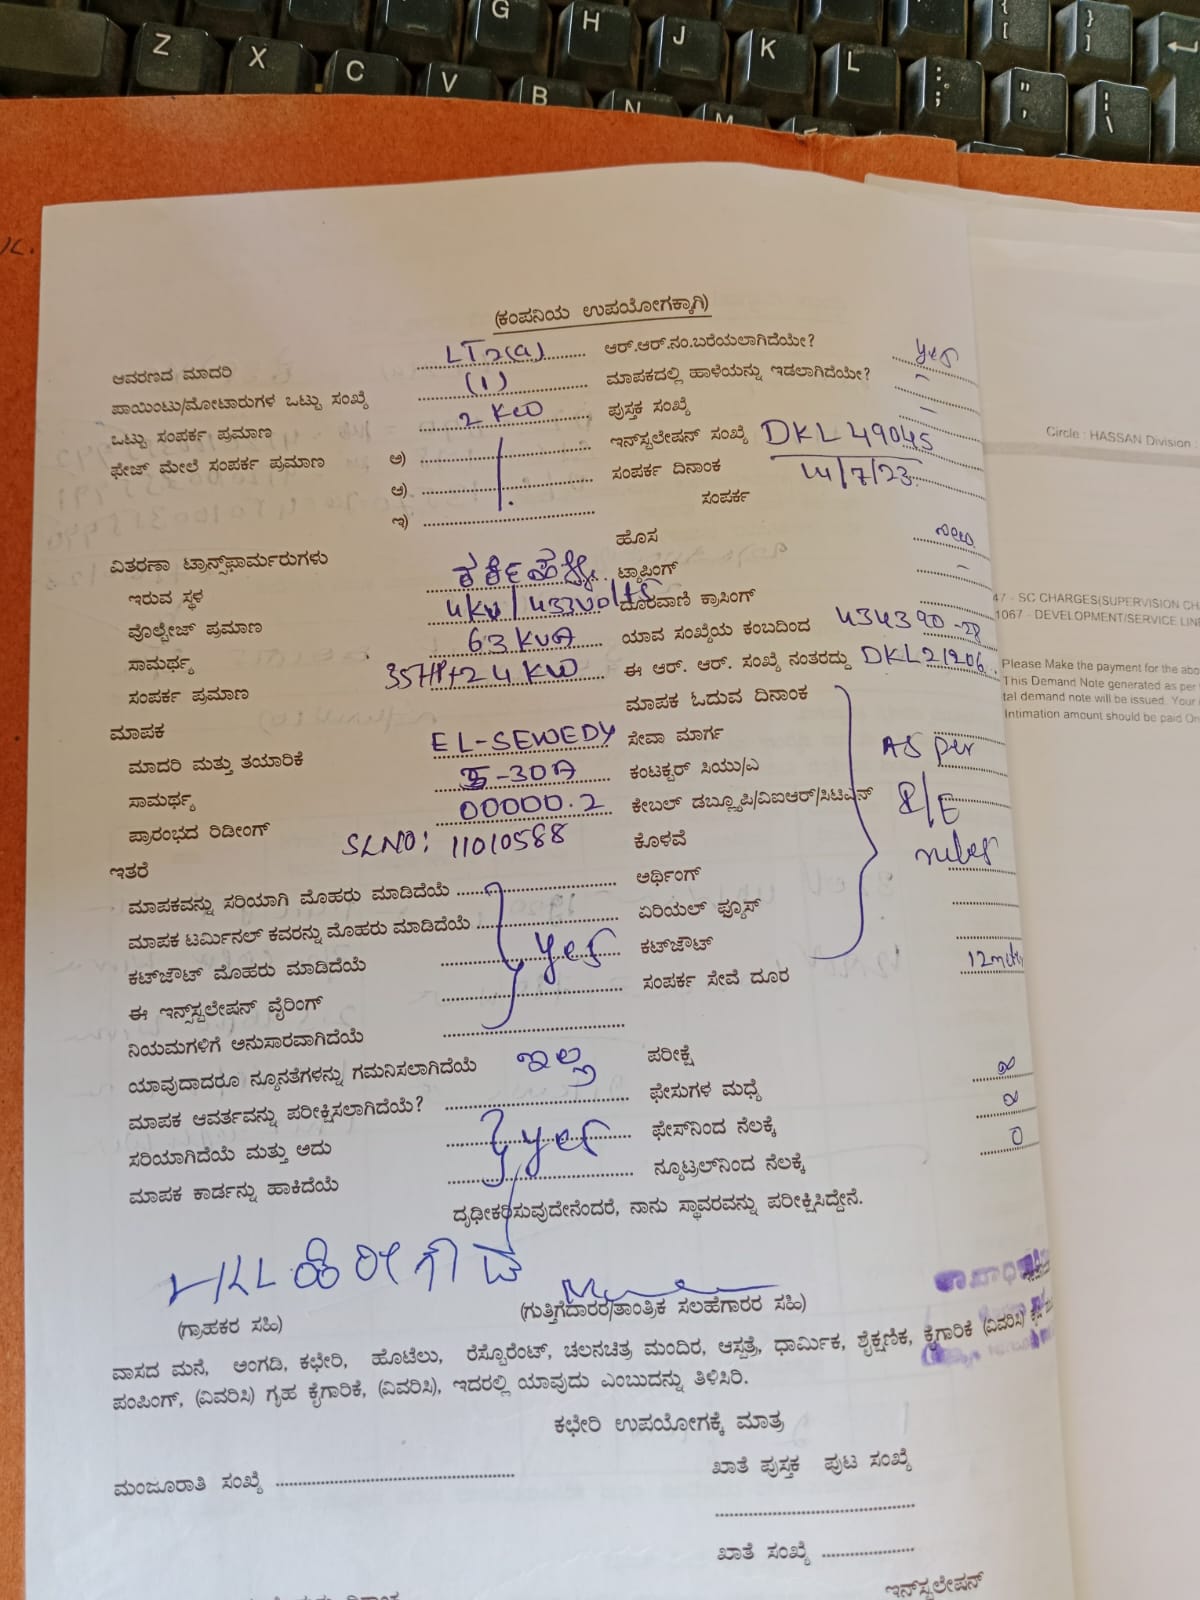 G H J K L { [ } ]
Z X C V B N M : ; " ' | \
(ಕಂಪನಿಯ ಉಪಯೋಗಕ್ಕಾಗಿ)
ಆವರಣದ ಮಾದರಿ LT2(a) ಆರ್.ಆರ್.ನಂ.ಬರೆಯಲಾಗಿದೆಯೇ? yes
ಪಾಯಿಂಟು/ಮೋಟಾರುಗಳ ಒಟ್ಟು ಸಂಖ್ಯೆ (1) ಮಾಪಕದಲ್ಲಿ ಹಾಳೆಯನ್ನು ಇಡಲಾಗಿದೆಯೇ? -
ಒಟ್ಟು ಸಂಪರ್ಕ ಪ್ರಮಾಣ 2 KW ಪುಸ್ತಕ ಸಂಖ್ಯೆ -
ಫೇಜ್ ಮೇಲೆ ಸಂಪರ್ಕ ಪ್ರಮಾಣ ಅ) ಇನ್‌ಸ್ಟಲೇಷನ್ ಸಂಖ್ಯೆ DKL 49045
ಆ) ಸಂಪರ್ಕ ದಿನಾಂಕ 14/7/23
ಇ) ಸಂಪರ್ಕ
ವಿತರಣಾ ಟ್ರಾನ್ಸ್‌ಫಾರ್ಮರುಗಳು ಹೊಸ new
ಇರುವ ಸ್ಥಳ ಟ್ಯಾಪಿಂಗ್ -
ವೊಲ್ಟೇಜ್ ಪ್ರಮಾಣ 4KV/433Volts ದೂರವಾಣಿ ಕ್ರಾಸಿಂಗ್
ಸಾಮರ್ಥ್ಯ 63 KVA ಯಾವ ಸಂಖ್ಯೆಯ ಕಂಬದಿಂದ 434390-28
ಸಂಪರ್ಕ ಪ್ರಮಾಣ 35HP+24KW ಈ ಆರ್. ಆರ್. ಸಂಖ್ಯೆ ನಂತರದ್ದು DKL21206
ಮಾಪಕ ಮಾಪಕ ಓದುವ ದಿನಾಂಕ
ಮಾದರಿ ಮತ್ತು ತಯಾರಿಕೆ EL-SEWEDY ಸೇವಾ ಮಾರ್ಗ As per
ಸಾಮರ್ಥ್ಯ 5-30A ಕಂಟಕ್ಟರ್ ಸಿಯು/ಎ
ಪ್ರಾರಂಭದ ರಿಡೀಂಗ್ 00000.2 ಕೇಬಲ್ ಡಬ್ಲ್ಯೂಪಿ/ವಿಐಆರ್/ಸಿಟಿಎನ್
ಇತರೆ SLNO: 11010588 ಕೊಳವೆ rules
ಮಾಪಕವನ್ನು ಸರಿಯಾಗಿ ಮೊಹರು ಮಾಡಿದೆಯೆ ಅರ್ಥಿಂಗ್
ಮಾಪಕ ಟರ್ಮಿನಲ್ ಕವರನ್ನು ಮೊಹರು ಮಾಡಿದೆಯೆ ಏರಿಯಲ್ ಫ್ಯೂಸ್
ಕಟ್‌ಜೌಟ್ ಮೊಹರು ಮಾಡಿದೆಯೆ yes ಕಟ್‌ಜೌಟ್
ಈ ಇನ್ಸ್‌ಸ್ಟಲೇಷನ್ ವೈರಿಂಗ್ ಸಂಪರ್ಕ ಸೇವೆ ದೂರ
ನಿಯಮಗಳಿಗೆ ಅನುಸಾರವಾಗಿದೆಯೆ
ಯಾವುದಾದರೂ ನ್ಯೂನತೆಗಳನ್ನು ಗಮನಿಸಲಾಗಿದೆಯೆ ಇಲ್ಲ ಪರೀಕ್ಷೆ
ಮಾಪಕ ಆವರ್ತವನ್ನು ಪರೀಕ್ಷಿಸಲಾಗಿದೆಯೆ? ಫೇಸುಗಳ ಮಧ್ಯೆ ∞
ಸರಿಯಾಗಿದೆಯೆ ಮತ್ತು ಅದು yes ಫೇಸ್‌ನಿಂದ ನೆಲಕ್ಕೆ ∞
ಮಾಪಕ ಕಾರ್ಡನ್ನು ಹಾಕಿದೆಯೆ ನ್ಯೂಟ್ರಲ್‌ನಿಂದ ನೆಲಕ್ಕೆ 0
ದೃಢೀಕರಿಸುವುದೇನೆಂದರೆ, ನಾನು ಸ್ಥಾವರವನ್ನು ಪರೀಕ್ಷಿಸಿದ್ದೇನೆ.
(ಗ್ರಾಹಕರ ಸಹಿ) (ಗುತ್ತಿಗೆದಾರರ/ತಾಂತ್ರಿಕ ಸಲಹೆಗಾರರ ಸಹಿ)
ವಾಸದ ಮನೆ, ಅಂಗಡಿ, ಕಛೇರಿ, ಹೊಟೆಲು, ರೆಸ್ಟೊರೆಂಟ್, ಚಲನಚಿತ್ರ ಮಂದಿರ, ಆಸ್ಪತ್ರೆ, ಧಾರ್ಮಿಕ, ಶೈಕ್ಷಣಿಕ, ಕೈಗಾರಿಕೆ (ವಿವರಿಸಿ)
ಪಂಪಿಂಗ್, (ವಿವರಿಸಿ) ಗೃಹ ಕೈಗಾರಿಕೆ, (ವಿವರಿಸಿ), ಇದರಲ್ಲಿ ಯಾವುದು ಎಂಬುದನ್ನು ತಿಳಿಸಿರಿ.
ಕಛೇರಿ ಉಪಯೋಗಕ್ಕೆ ಮಾತ್ರ
ಮಂಜೂರಾತಿ ಸಂಖ್ಯೆ ಖಾತೆ ಪುಸ್ತಕ ಪುಟ ಸಂಖ್ಯೆ
ಖಾತೆ ಸಂಖ್ಯೆ
ಇನ್‌ಸ್ಟಲೇಷನ್
Circle : HASSAN Division :
47 - SC CHARGES(SUPERVISION CH
1067 - DEVELOPMENT/SERVICE LINE
Please Make the payment for the abo
This Demand Note generated as per
tal demand note will be issued. Your
Intimation amount should be paid On